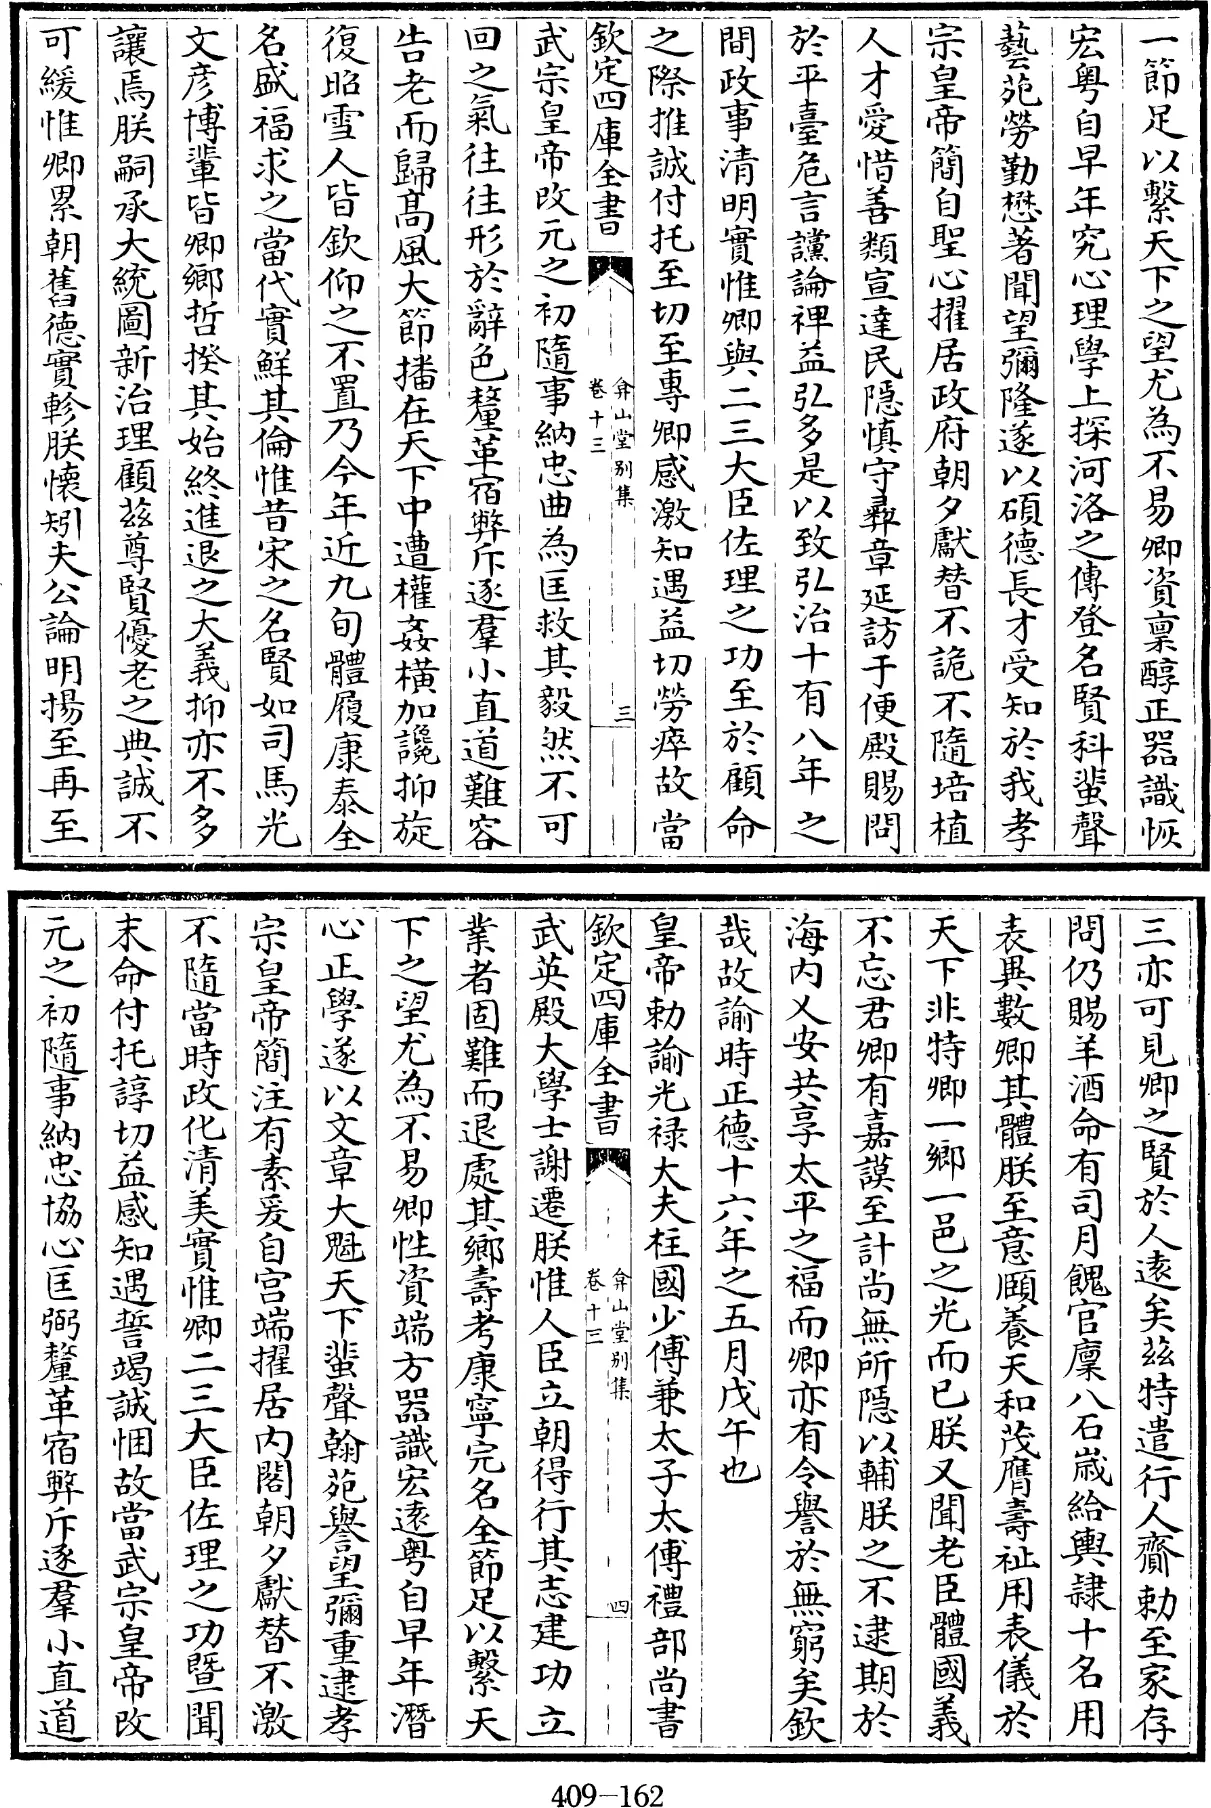 一節足以繫天下之望尤為不易卿資稟醇正器識恢
宏粤自早年究心理學上探河洛之傳登名賢科蜚聲
藝苑勞勤懋著聞望彌隆遂以碩德長才受知於我孝
宗皇帝簡自聖心擢居政府朝夕獻替不詭不隨培植
人才愛惜善類宣達民隱慎守彞章延訪于便殿賜問
於平臺危言讜論裨益弘多是以致弘治十有八年之
間政事清明實惟卿與二三大臣佐理之功至於顧命
之際推誠付托至切至專卿感激知遇益切勞瘁故當
欽定四庫全書
弇山堂别集
卷十三
三
武宗皇帝改元之初隨事納忠曲為匡救其毅然不可
回之氣往往形於辭色釐革宿弊斥逐羣小直道難容
告老而歸高風大節播在天下中遭權姦横加讒抑旋
復昭雪人皆欽仰之不置乃今年近九旬體履康泰全
名盛福求之當代實鮮其倫惟昔宋之名賢如司馬光
文彦博輩皆卿鄉哲揆其始終進退之大義抑亦不多
讓焉朕嗣承大統圖新治理顧兹尊賢優老之典誠不
可緩惟卿累朝舊德實軫朕懷矧夫公論明揚至再至
三亦可見卿之賢於人逺矣兹特遣行人齎勅至家存
問仍賜羊酒命有司月餽官廩八石嵗給輿隸十名用
表異數卿其體朕至意頤養天和茂膺壽祉用表儀於
天下非特卿一鄉一邑之光而已朕又聞老臣體國義
不忘君卿有嘉謨至計尚無所隱以輔朕之不逮期於
海内乂安共享太平之福而卿亦有令譽於無窮矣欽
哉故諭時正德十六年之五月戊午也
皇帝勅諭光禄大夫柱國少傅兼太子太傅禮部尚書
欽定四庫全書
弇山堂别集
卷十三
四
武英殿大學士謝遷朕惟人臣立朝得行其志建功立
業者固難而退處其鄉壽考康寧完名全節足以繫天
下之望尤為不易卿性資端方器識宏逺粤自早年潛
心正學遂以文章大魁天下蜚聲翰苑譽望彌重逮孝
宗皇帝簡注有素爰自宫端擢居内閣朝夕獻替不激
不隨當時政化清美實惟卿二三大臣佐理之功暨聞
末命付托諄切益感知遇誓竭誠悃故當武宗皇帝改
元之初隨事納忠協心匡弼釐革宿弊斥逐羣小直道
409-162